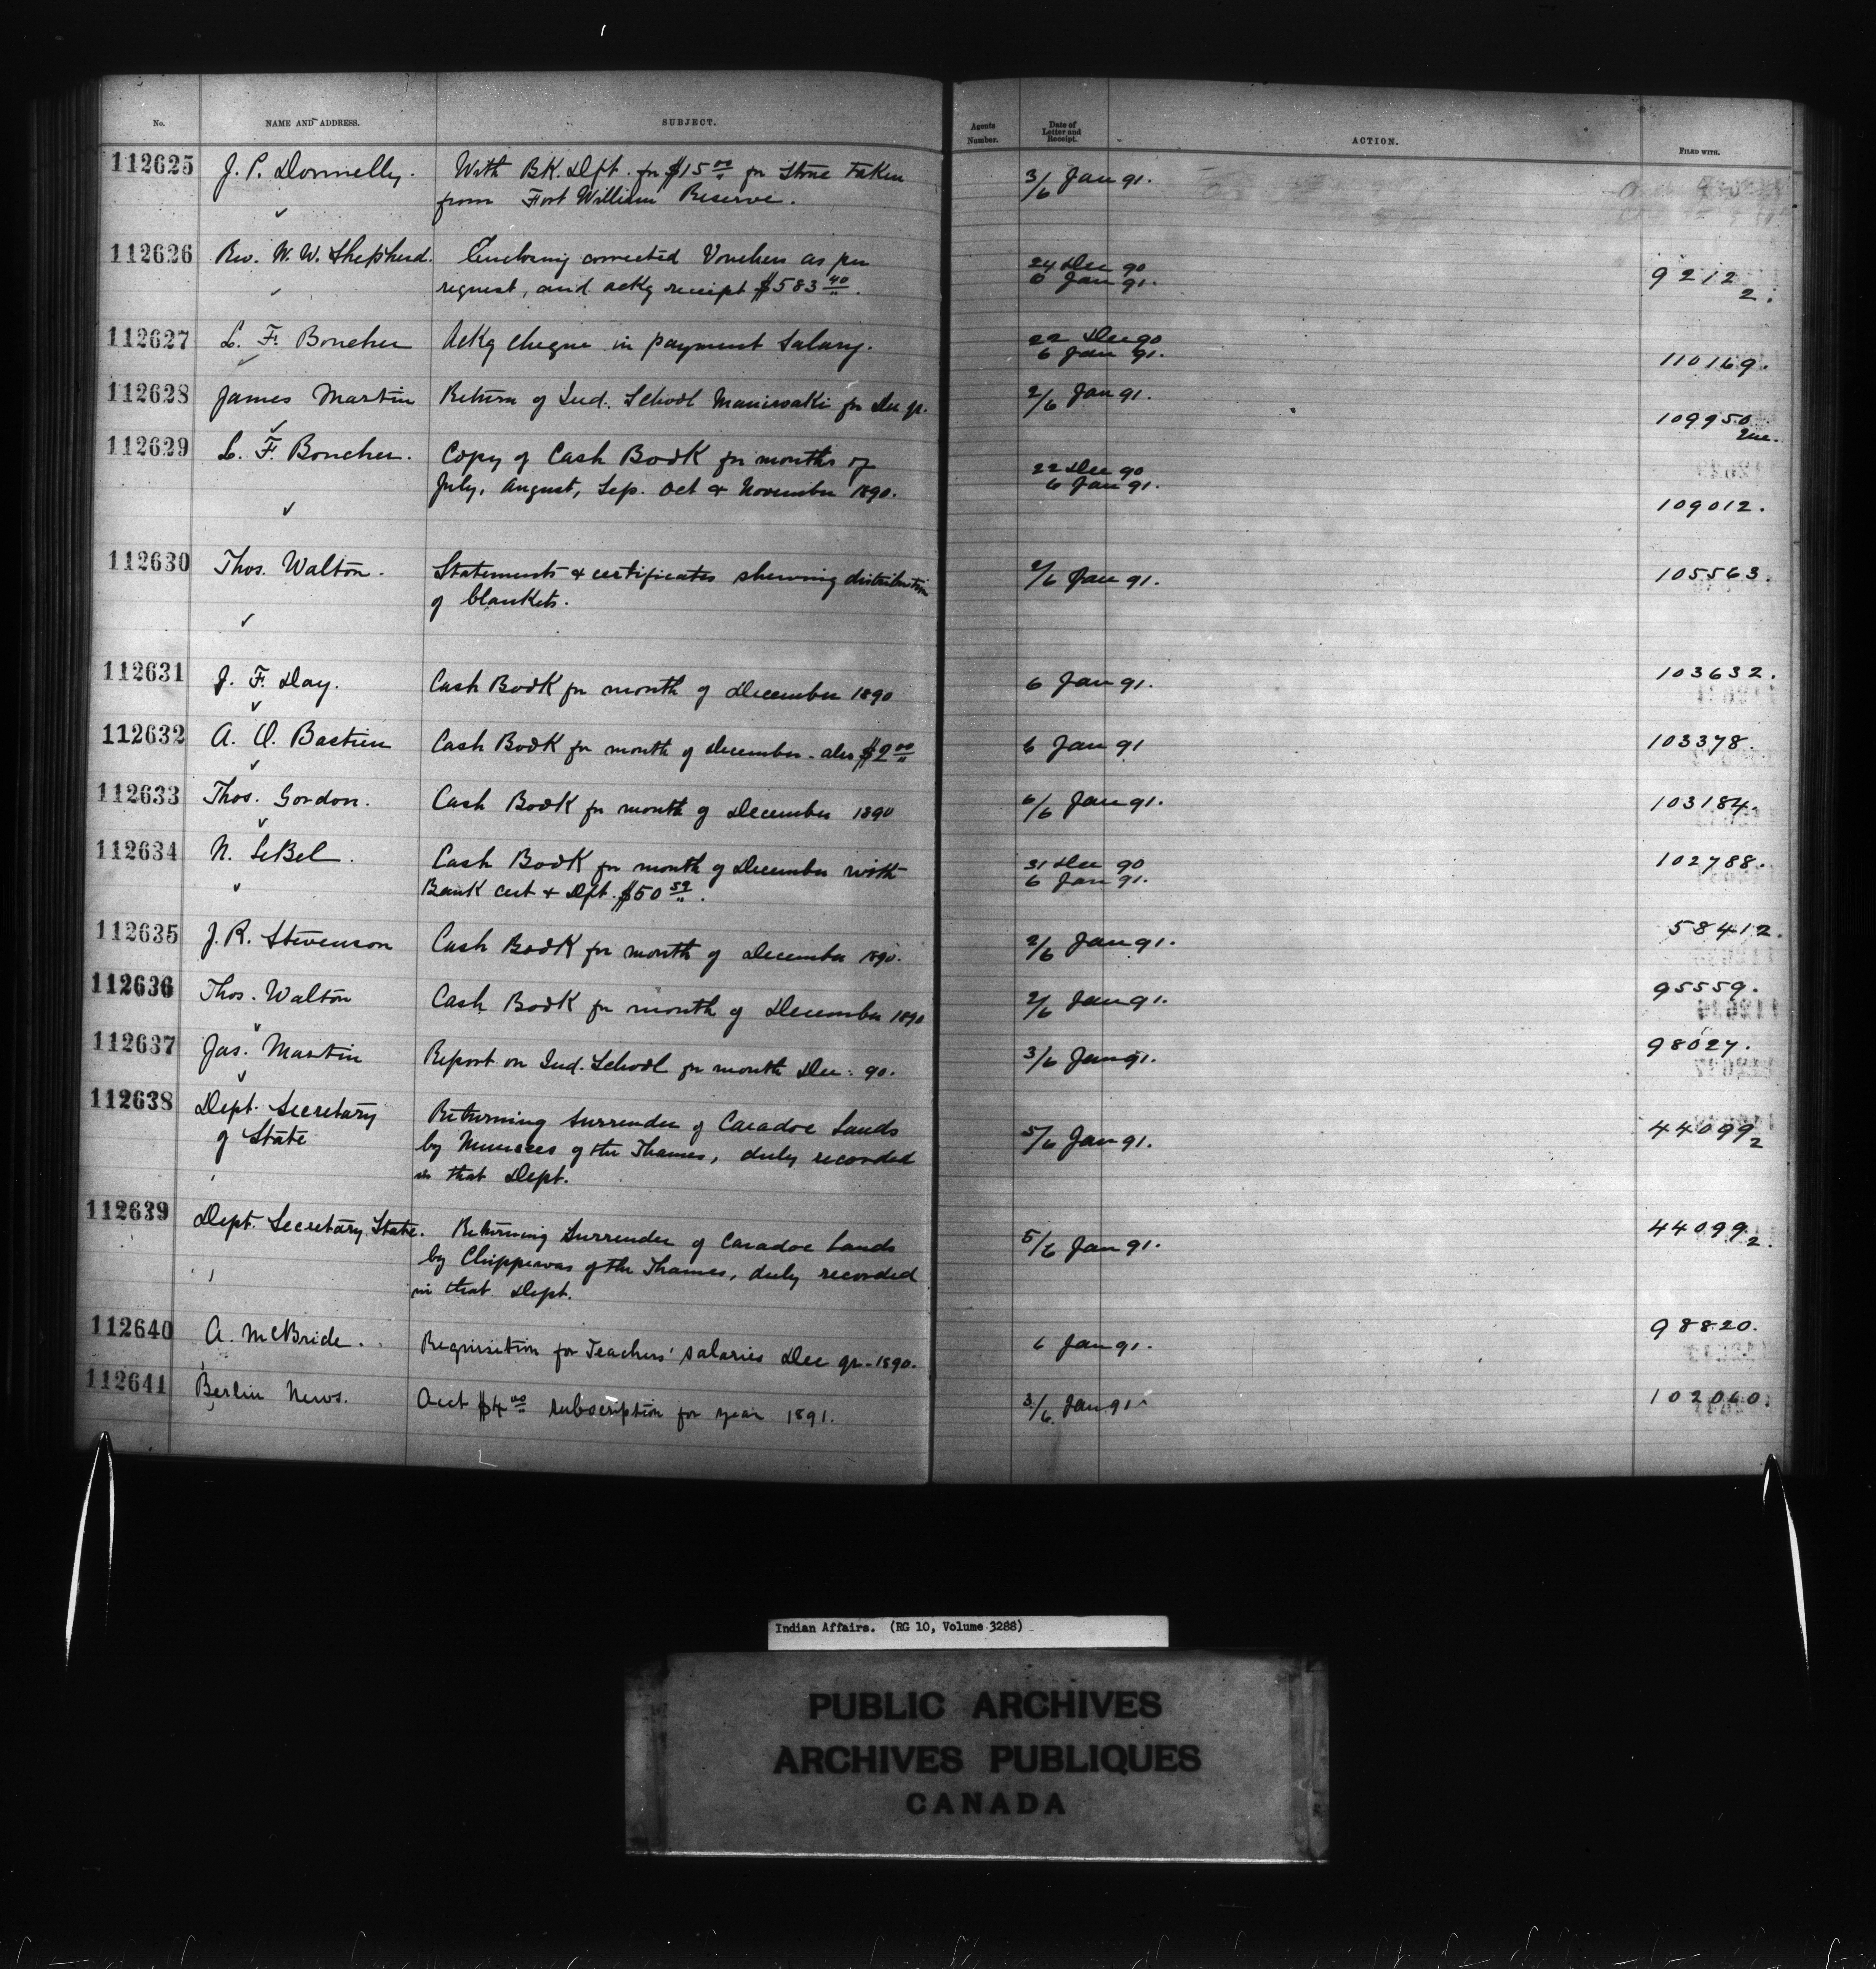 No. NAME AND ADDRESS. SUBJECT. Agents Number. Date of Letter and Receipt. ACTION. FILED WITH.
112625 J. P. Donnelly. With BK. Dft. for $15 00 for Stone taken 3/6 Jan 91.
from Fort William Reserve.
112626 Rev. W. W. Shepherd. Enclosing corrected Vouchers as per 24 Dec 90
request, and ackg receipt $583 40. 6 Jan 91. 9212 2.
112627 L. F. Boucher Ackg cheque in payment Salary. 22 Dec 90
6 Jan 91. 110169.
112628 James Martin Return of Ind. School Maniwaki for Dec qr. 2/6 Jan 91. 109950 2nc.
112629 L. F. Boucher. Copy of Cash Book for months of 22 Dec 90
July, August, Sep. Oct & November 1890. 6 Jan 91. 109012.
112630 Thos. Walton. Statements & certificates shewing distribution 2/6 Jan 91. 105563.
of blankets.
112631 J. F. Day. Cash Book for month of December 1890 6 Jan 91. 103632.
112632 A. O. Bastien Cash Book for month of December - also $2 00 6 Jan 91 103378.
112633 Thos. Gordon. Cash Book for month of December 1890 6/6 Jan 91. 103184.
112634 N. LeBel. Cash Book for month of December with 31 Dec 90 102788.
Bank cert & Dft. $50 59. 6 Jan 91.
112635 J. R. Stevenson Cash Book for month of December 1890. 2/6 Jan 91. 58412.
112636 Thos. Walton Cash Book for month of December 1890 2/6 Jan 91. 95559.
112637 Jas. Martin Report on Ind. School for month Dec. 90. 3/6 Jan 91. 98027.
112638 Dept. Secretary Returning Surrender of Caradoc Lands 44099 2
of State by Munsees of the Thames, duly recorded 5/6 Jan 91.
in that Dept.
112639 Dept. Secretary State. Returning Surrender of Caradoc Lands 5/6 Jan 91. 44099 2.
by Chippewas of the Thames, duly recorded
in that Dept.
112640 A. McBride. Requisition for Teachers' salaries Dec qr. 1890. 6 Jan 91. 98820.
112641 Berlin News. Acct $4 00 subscription for year 1891. 3/6 Jan 91. 102060.
Indian Affairs. (RG 10, Volume 3288)
PUBLIC ARCHIVES
ARCHIVES PUBLIQUES
CANADA